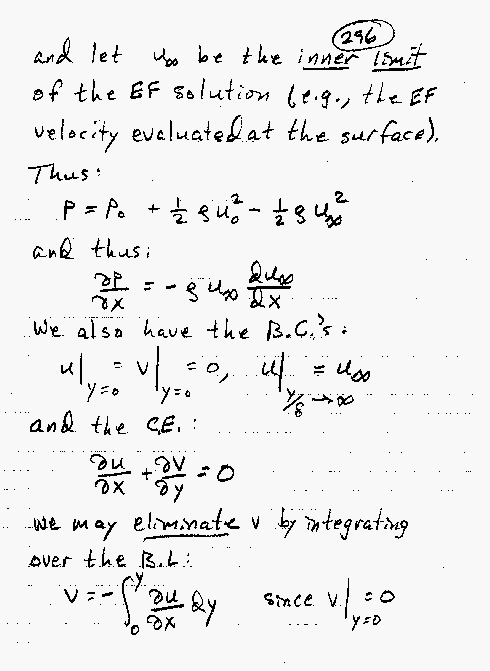 296
and let u∞ be the inner limit
of the EF solution (e.g., the EF
velocity evaluated at the surface).
Thus:
P = P₀ + ½ ρ u₀² - ½ ρ u∞²
and thus:
∂P/∂x = - ρ u∞ du∞/dx
We also have the B.C.'s:
u|y=0 = v|y=0 = 0, u|y/δ→∞ = u∞
and the C.E.:
∂u/∂x + ∂v/∂y = 0
we may eliminate v by integrating
over the B.L:
v = - ∫₀ʸ ∂u/∂x dy since v|y=0 = 0